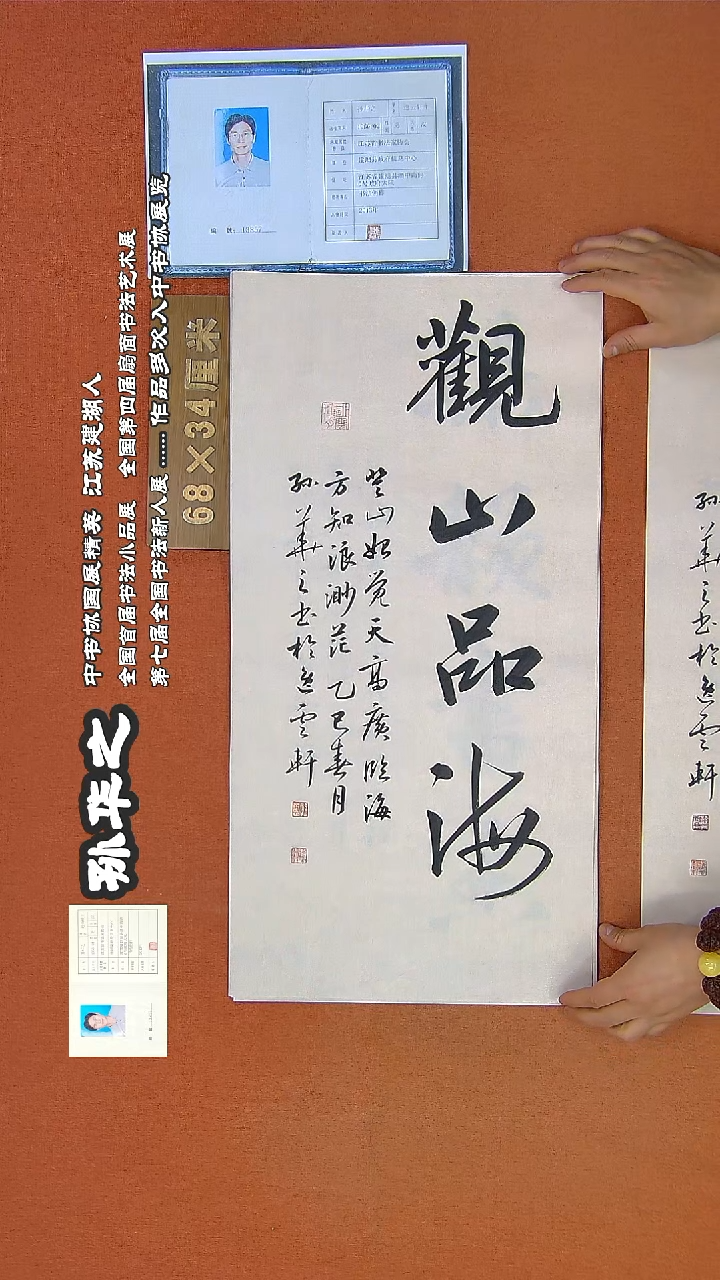 觀山品海
登山始觉天高廣临海
方知浪渺茫乙巳春月
孙華之书於逸雲軒
68×34厘米
孙华之
中书协国展精英 江苏建湖人
全国首届书法小品展 全国第四届扇面书法艺术展
第七届全国书法新人展……作品多次入中书协展览
孙華之书於逸雲軒